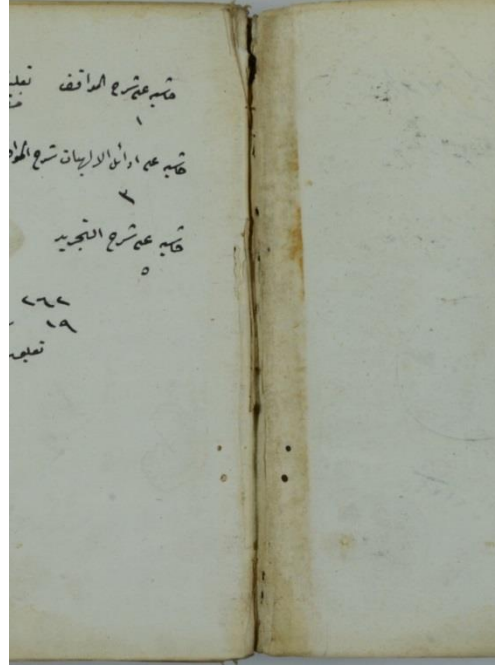 حاشيه على شرح المواقف
١
حاشيه على اوائل الالهيات شرح
٣
حاشيه على شرح التجريد
٥
٢٦٢
١٩